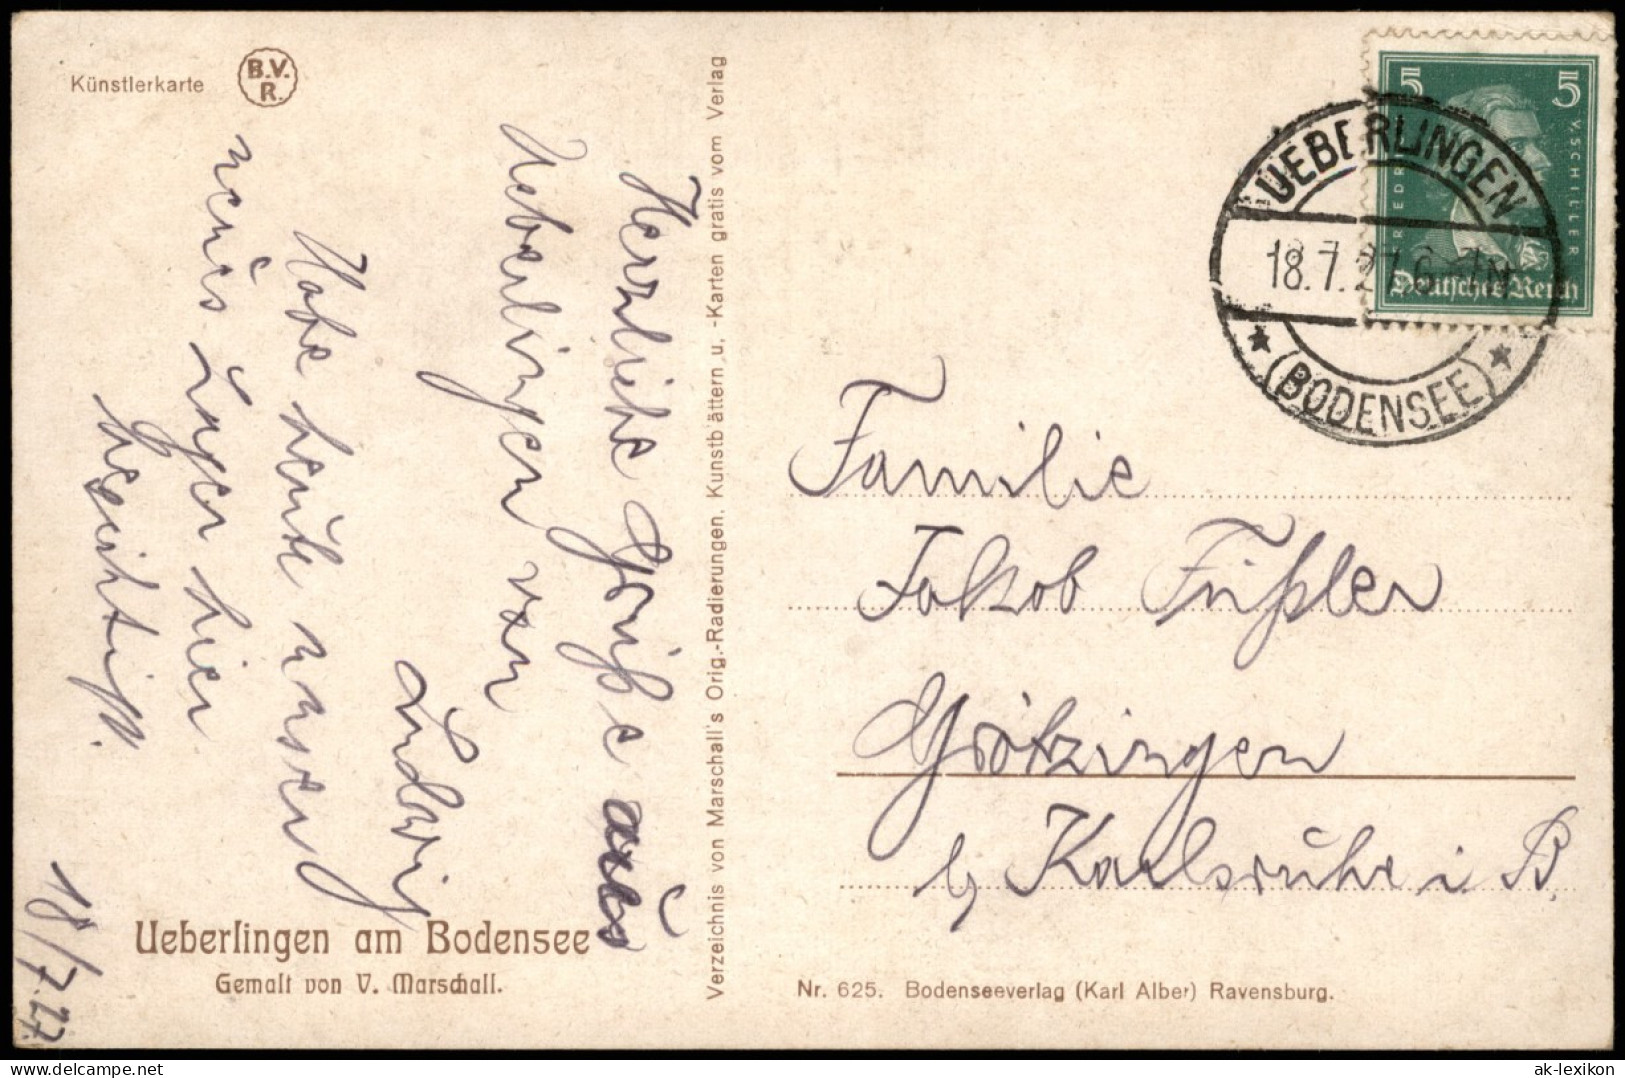 Künstlerkarte
B.V.
R.
Herzliche Grüße aus
Ueberlingen von
Ludwig
Habe heute unser
neues Lager hier
besichtigt.
18/7 27
Ueberlingen am Bodensee
Gemalt von V. Marschall.
Verzeichnis von Marschall's Orig.-Radierungen, Kunstblättern u. -Karten gratis vom Verlag
5 5
FRIEDR. V. SCHILLER
Deutsches Reich
UEBERLINGEN
18.7.27. 6-7N
(BODENSEE)
Familie
Jakob Füßler
Grötzingen
b/ Karlsruhe i B.
Nr. 625. Bodenseeverlag (Karl Alber) Ravensburg.
ak-lexikon